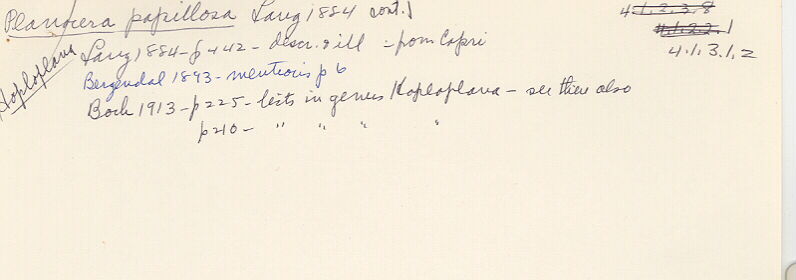 Planocera papillosa Lang 1884 cont.
4.1.2.3.8
4.1.2.2.1
4.1.3.1.2
Hoploplana
Lang 1884 - p 442 - descr. & ill - from Capri
Bergendal 1893 - mentions p 6
Bock 1913 - p 225 - lists in genus Hoploplana - see there also
p 210 - " " " "